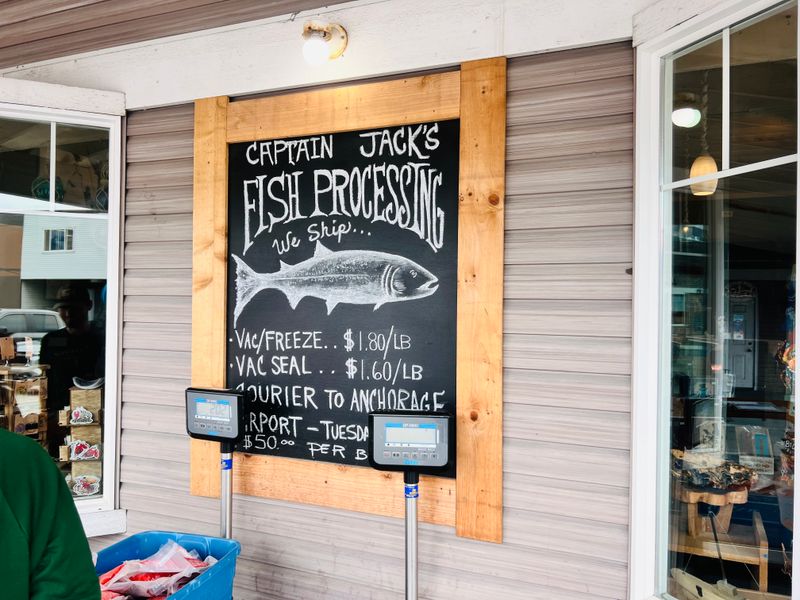 CAPTAIN JACK'S
FISH PROCESSING
We Ship...
• VAC/FREEZE.. $1.80/LB
• VAC SEAL .. $1.60/LB
COURIER TO ANCHORAGE
- TUESDA
$50.00 PER B